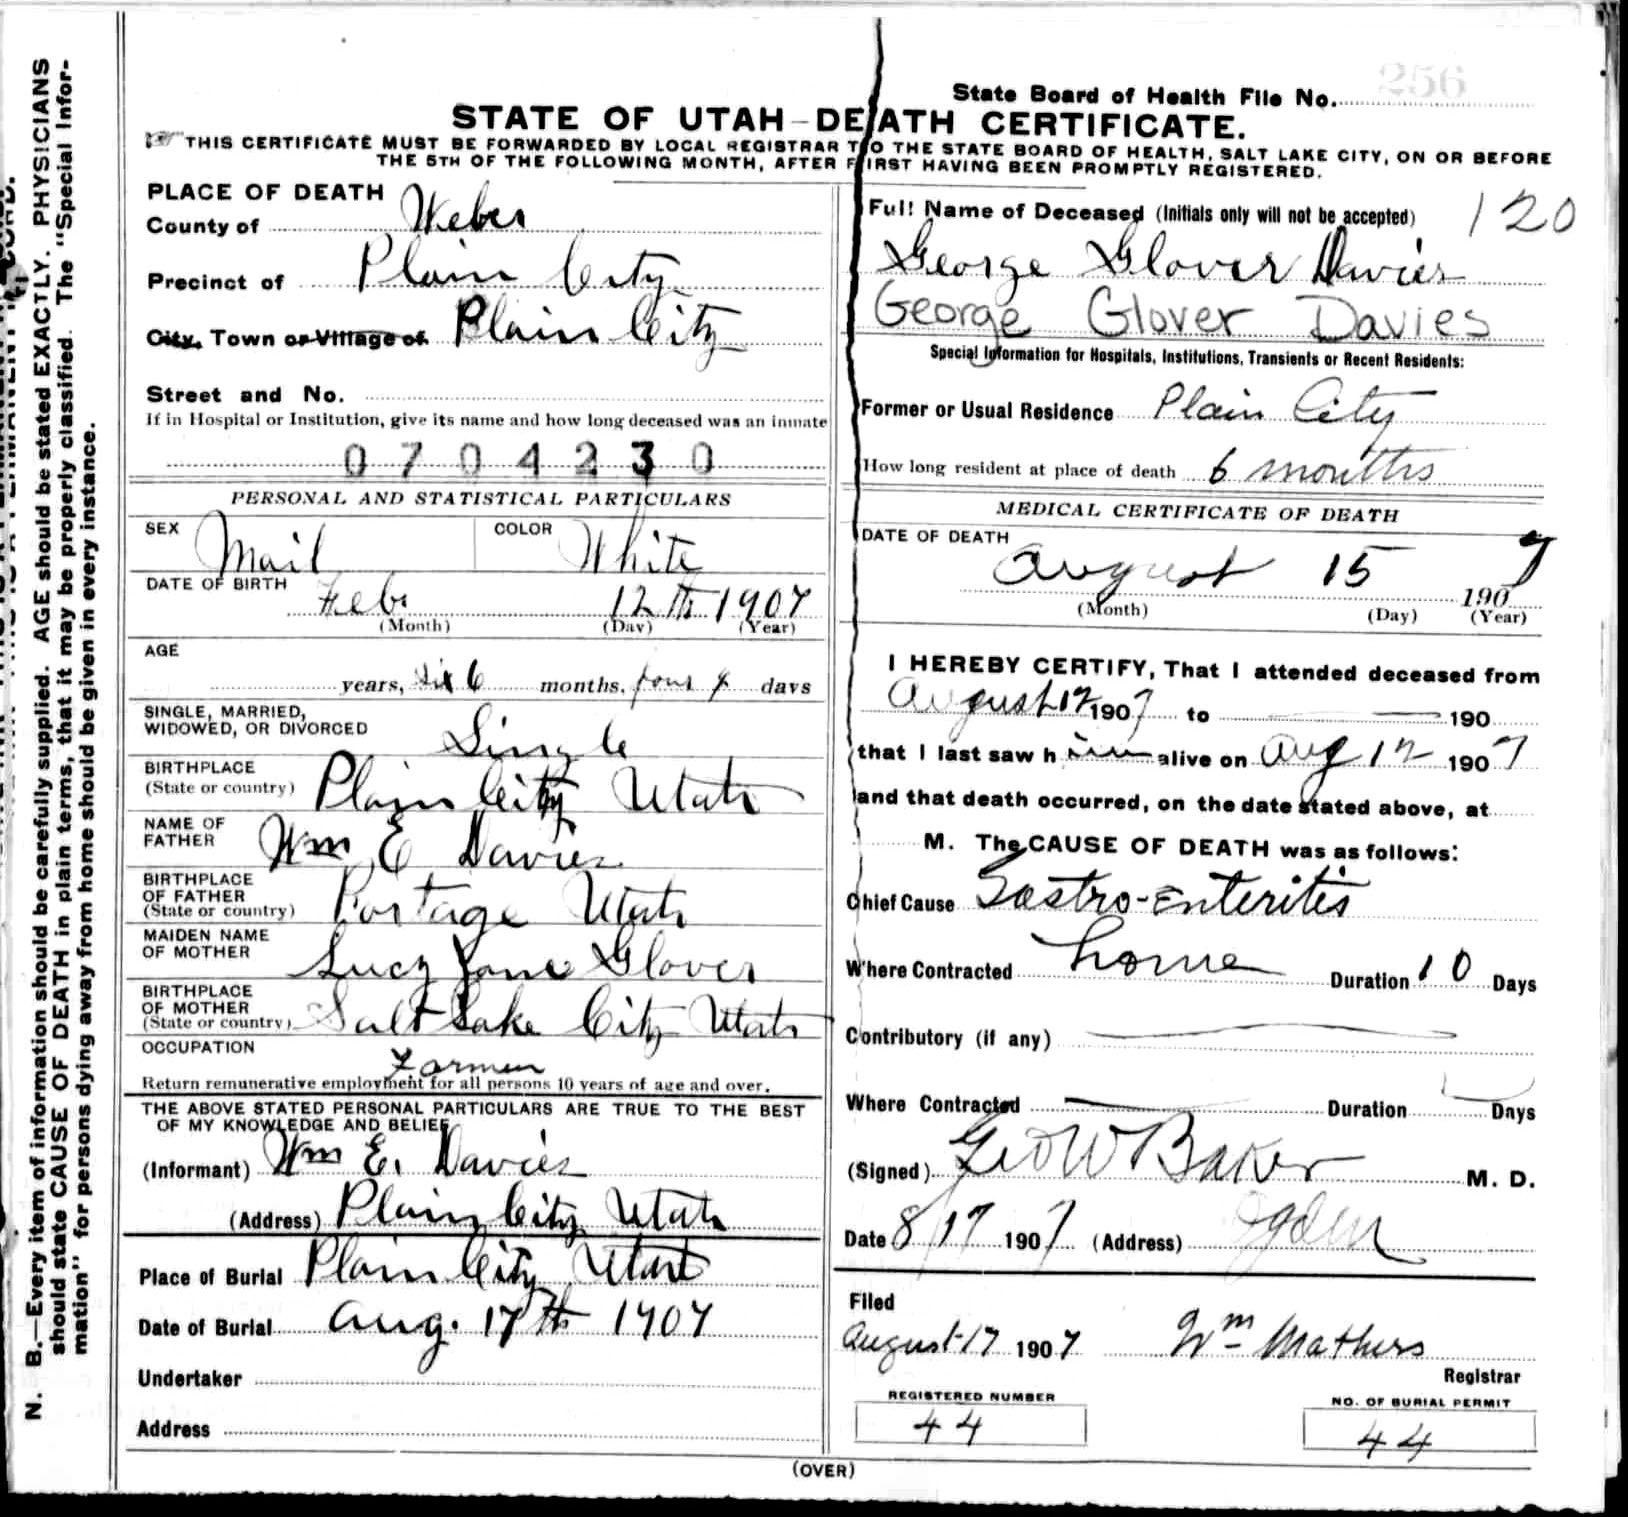 256
State Board of Health File No.
STATE OF UTAH-DEATH CERTIFICATE.
THIS CERTIFICATE MUST BE FORWARDED BY LOCAL REGISTRAR TO THE STATE BOARD OF HEALTH, SALT LAKE CITY, ON OR BEFORE
THE 5TH OF THE FOLLOWING MONTH, AFTER FIRST HAVING BEEN PROMPTLY REGISTERED.
PLACE OF DEATH
County of Weber
Precinct of Plain City
City, Town or Village of Plain City
Street and No.
If in Hospital or Institution, give its name and how long deceased was an inmate
0704230
PERSONAL AND STATISTICAL PARTICULARS
SEX Mail COLOR White
DATE OF BIRTH Feb. 12th 1907
(Month) (Day) (Year)
AGE
years, six 6 months, four 4 days
SINGLE, MARRIED,
WIDOWED, OR DIVORCED Single
BIRTHPLACE
(State or country) Plain City Utah
NAME OF
FATHER Wm E Davies
BIRTHPLACE
OF FATHER
(State or country) Portage Utah
MAIDEN NAME
OF MOTHER Lucy Jane Glover
BIRTHPLACE
OF MOTHER
(State or country) Salt Lake City Utah
OCCUPATION Farmer
Return remunerative employment for all persons 10 years of age and over.
THE ABOVE STATED PERSONAL PARTICULARS ARE TRUE TO THE BEST
OF MY KNOWLEDGE AND BELIEF
(Informant) Wm E. Davies
(Address) Plain City Utah
Place of Burial Plain City Utah
Date of Burial Aug. 17th 1907
Undertaker
Address
Full Name of Deceased (Initials only will not be accepted) 120
George Glover Davies
George Glover Davies
Special Information for Hospitals, Institutions, Transients or Recent Residents:
Former or Usual Residence Plain City
How long resident at place of death 6 months
MEDICAL CERTIFICATE OF DEATH
DATE OF DEATH
August 15 1907
(Month) (Day) (Year)
I HEREBY CERTIFY, That I attended deceased from
August 12 1907 to — 190
that I last saw him alive on Aug 12 1907
and that death occurred, on the date stated above, at
M. The CAUSE OF DEATH was as follows:
Chief Cause Gastro-Enteritis
Where Contracted home Duration 10 Days
Contributory (if any)
Where Contracted Duration Days
(Signed) Geo W Baker M. D.
Date 8/17 1907 (Address) Ogden
Filed
August 17 1907 Wm Mathers
Registrar
REGISTERED NUMBER
44
NO. OF BURIAL PERMIT
44
(OVER)
N. B.—Every item of information should be carefully supplied. AGE should be stated EXACTLY. PHYSICIANS
should state CAUSE OF DEATH in plain terms, that it may be properly classified. The "Special Infor-
mation" for persons dying away from home should be given in every instance.